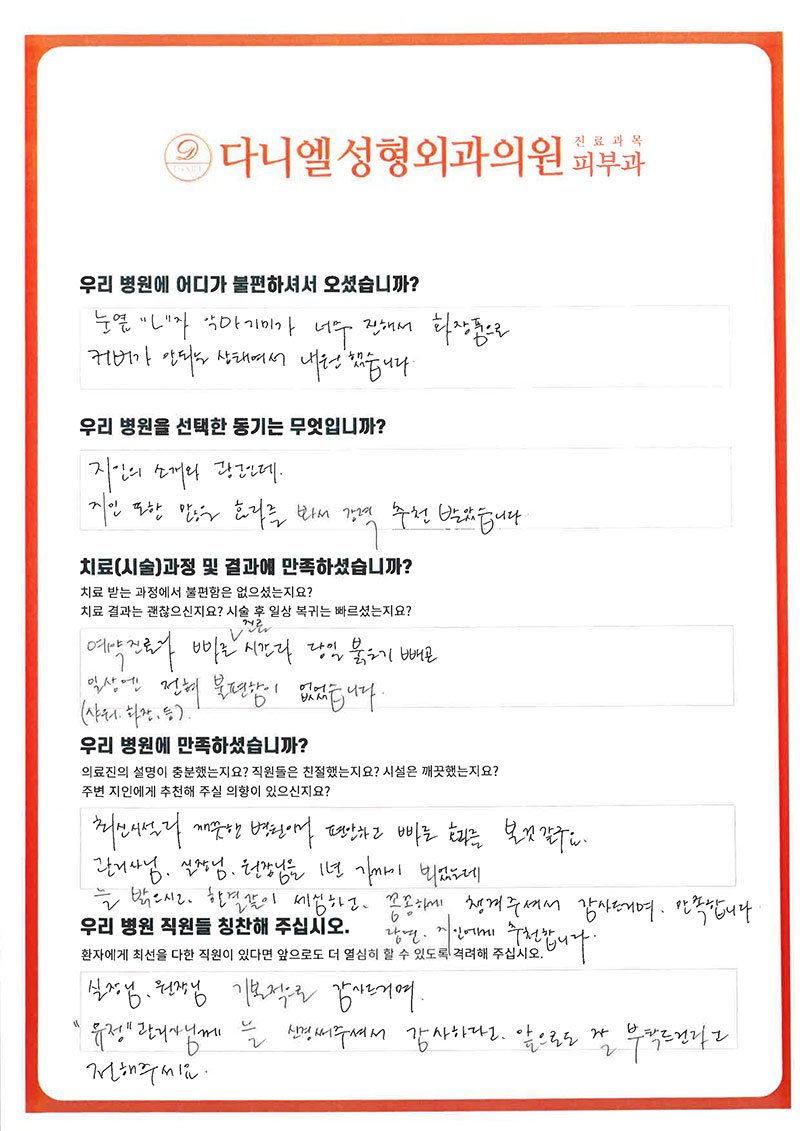 다니엘성형외과의원 진료과목 피부과
우리 병원에 어디가 불편하셔서 오셨습니까?
눈옆 "L"자 악마기미가 너무 진해서 화장품으로
커버가 안되는 상태여서 내원했습니다.
우리 병원을 선택한 동기는 무엇입니까?
지인의 소개와 광고인데.
지인 또한 많은 효과를 봐서 강력 추천 받았습니다.
치료(시술)과정 및 결과에 만족하셨습니까?
치료 받는 과정에서 불편함은 없으셨는지요?
치료 결과는 괜찮으신지요? 시술 후 일상 복귀는 빠르셨는지요?
진료
예약진료라 빠른 시간다 당일 붉은기 빼곤
일상엔 전혀 불편함이 없었습니다.
(샤워. 화장. 등).
우리 병원에 만족하셨습니까?
의료진의 설명이 충분했는지요? 직원들은 친절했는지요? 시설은 깨끗했는지요?
주변 지인에게 추천해 주실 의향이 있으신지요?
최신시설과 깨끗한 병원이라 편안하고 빠른 효과를 볼것 같구요.
관리사님, 실장님, 원장님을 1년 가까이 뵈었는데
늘 밝으시고. 한결같이 세심하고. 꼼꼼하게 챙겨주셔서 감사드리며. 만족합니다.
당연. 지인에게 추천합니다.
우리 병원 직원들 칭찬해 주십시오.
환자에게 최선을 다한 직원이 있다면 앞으로도 더 열심히 할 수 있도록 격려해 주십시오.
실장님, 원장님 기본적으로 감사드리며.
"유정"관리사님께 늘 신경써주셔서 감사하다고. 앞으로도 잘 부탁드린다고
전해주세요.